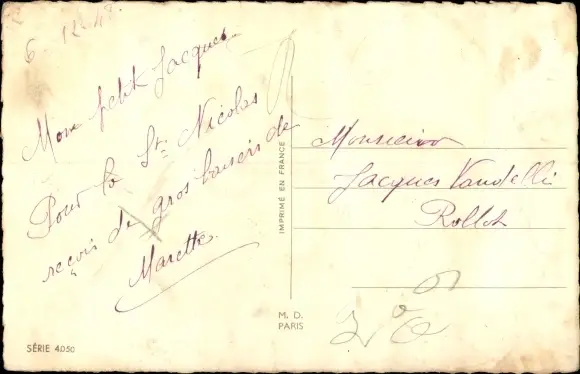 6.12.48.
Mon petit Jacques
Pour la St Nicolas
reçois de gros baisers de
Marette.
IMPRIMÉ EN FRANCE
M. D.
PARIS
SÉRIE 4050
Monsieur
Jacques Vandelli
Rollot